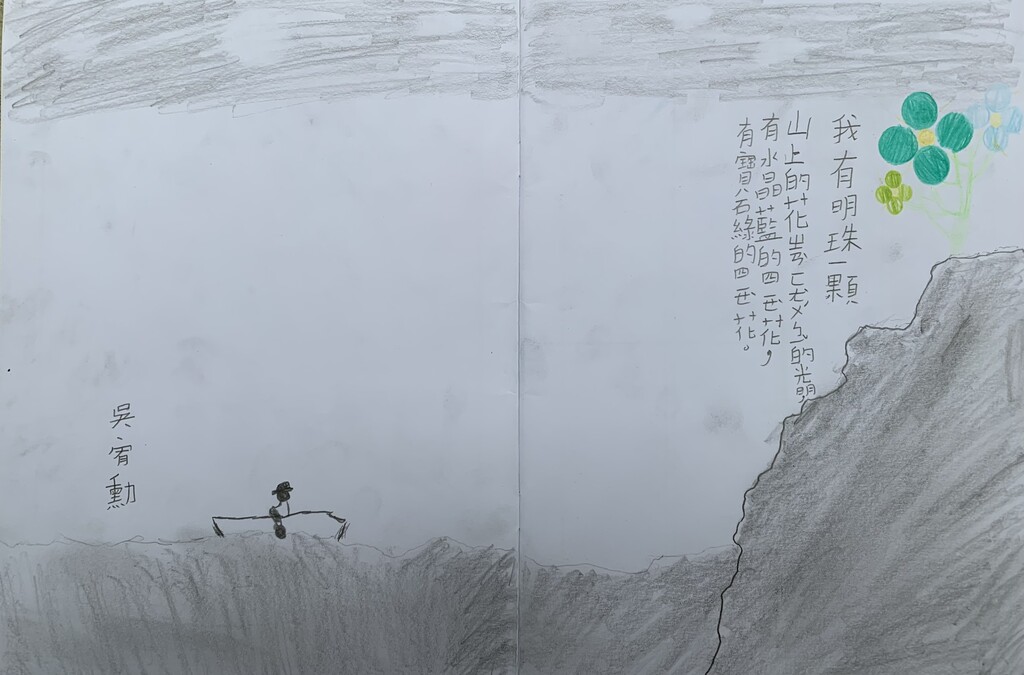 我有明珠一顆
山上的花的光明，
有水晶藍的四ㄧㄝ花，
有寶石綠的四ㄧㄝ花。
吳宥勳